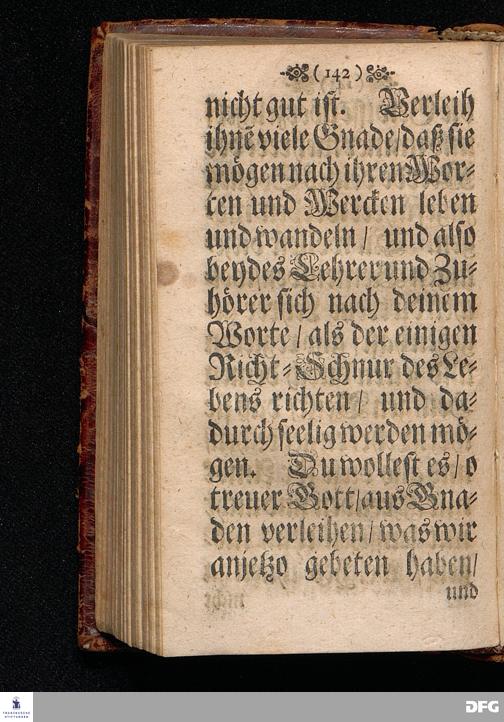 (142)
nicht gut ist. Verleih
ihnē viele Gnade/daß sie
mögen nach ihren Wor-
ten und Wercken leben
und wandeln/ und also
beydes Lehrer und Zu-
hörer sich nach deinem
Worte/als der einigen
Richt-Schnur des Le-
bens richten/ und da-
durch seelig werden mö-
gen. Du wollest es/o
treuer Gott/aus Gna-
den verleihen/was wir
anjetzo gebeten haben/
und
FRANCKESCHE
STIFTUNGEN
DFG